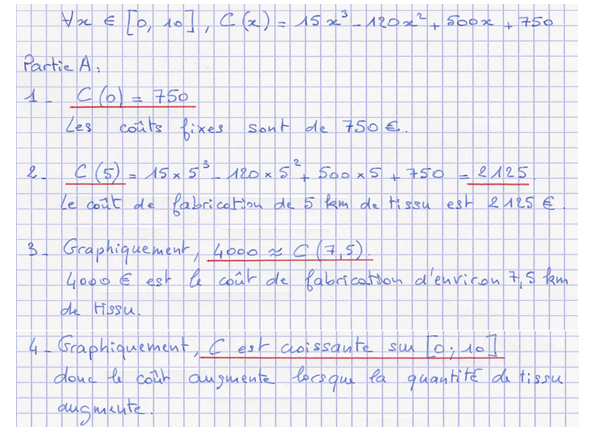 ∀x ∈ [0, 10], C(x) = 15x³ - 120x² + 500x + 750
Partie A:
1_ C(0) = 750
Les coûts fixes sont de 750 €.
2_ C(5) = 15 × 5³ - 120 × 5² + 500 × 5 + 750 = 2125.
Le coût de fabrication de 5 km de tissu est 2125 €.
3_ Graphiquement, 4000 ≈ C(7,5)
4000 € est le coût de fabrication d'environ 7,5 km
de tissu.
4_ Graphiquement, C est croissante sur [0; 10]
donc le coût augmente lorsque la quantité de tissu
augmente.